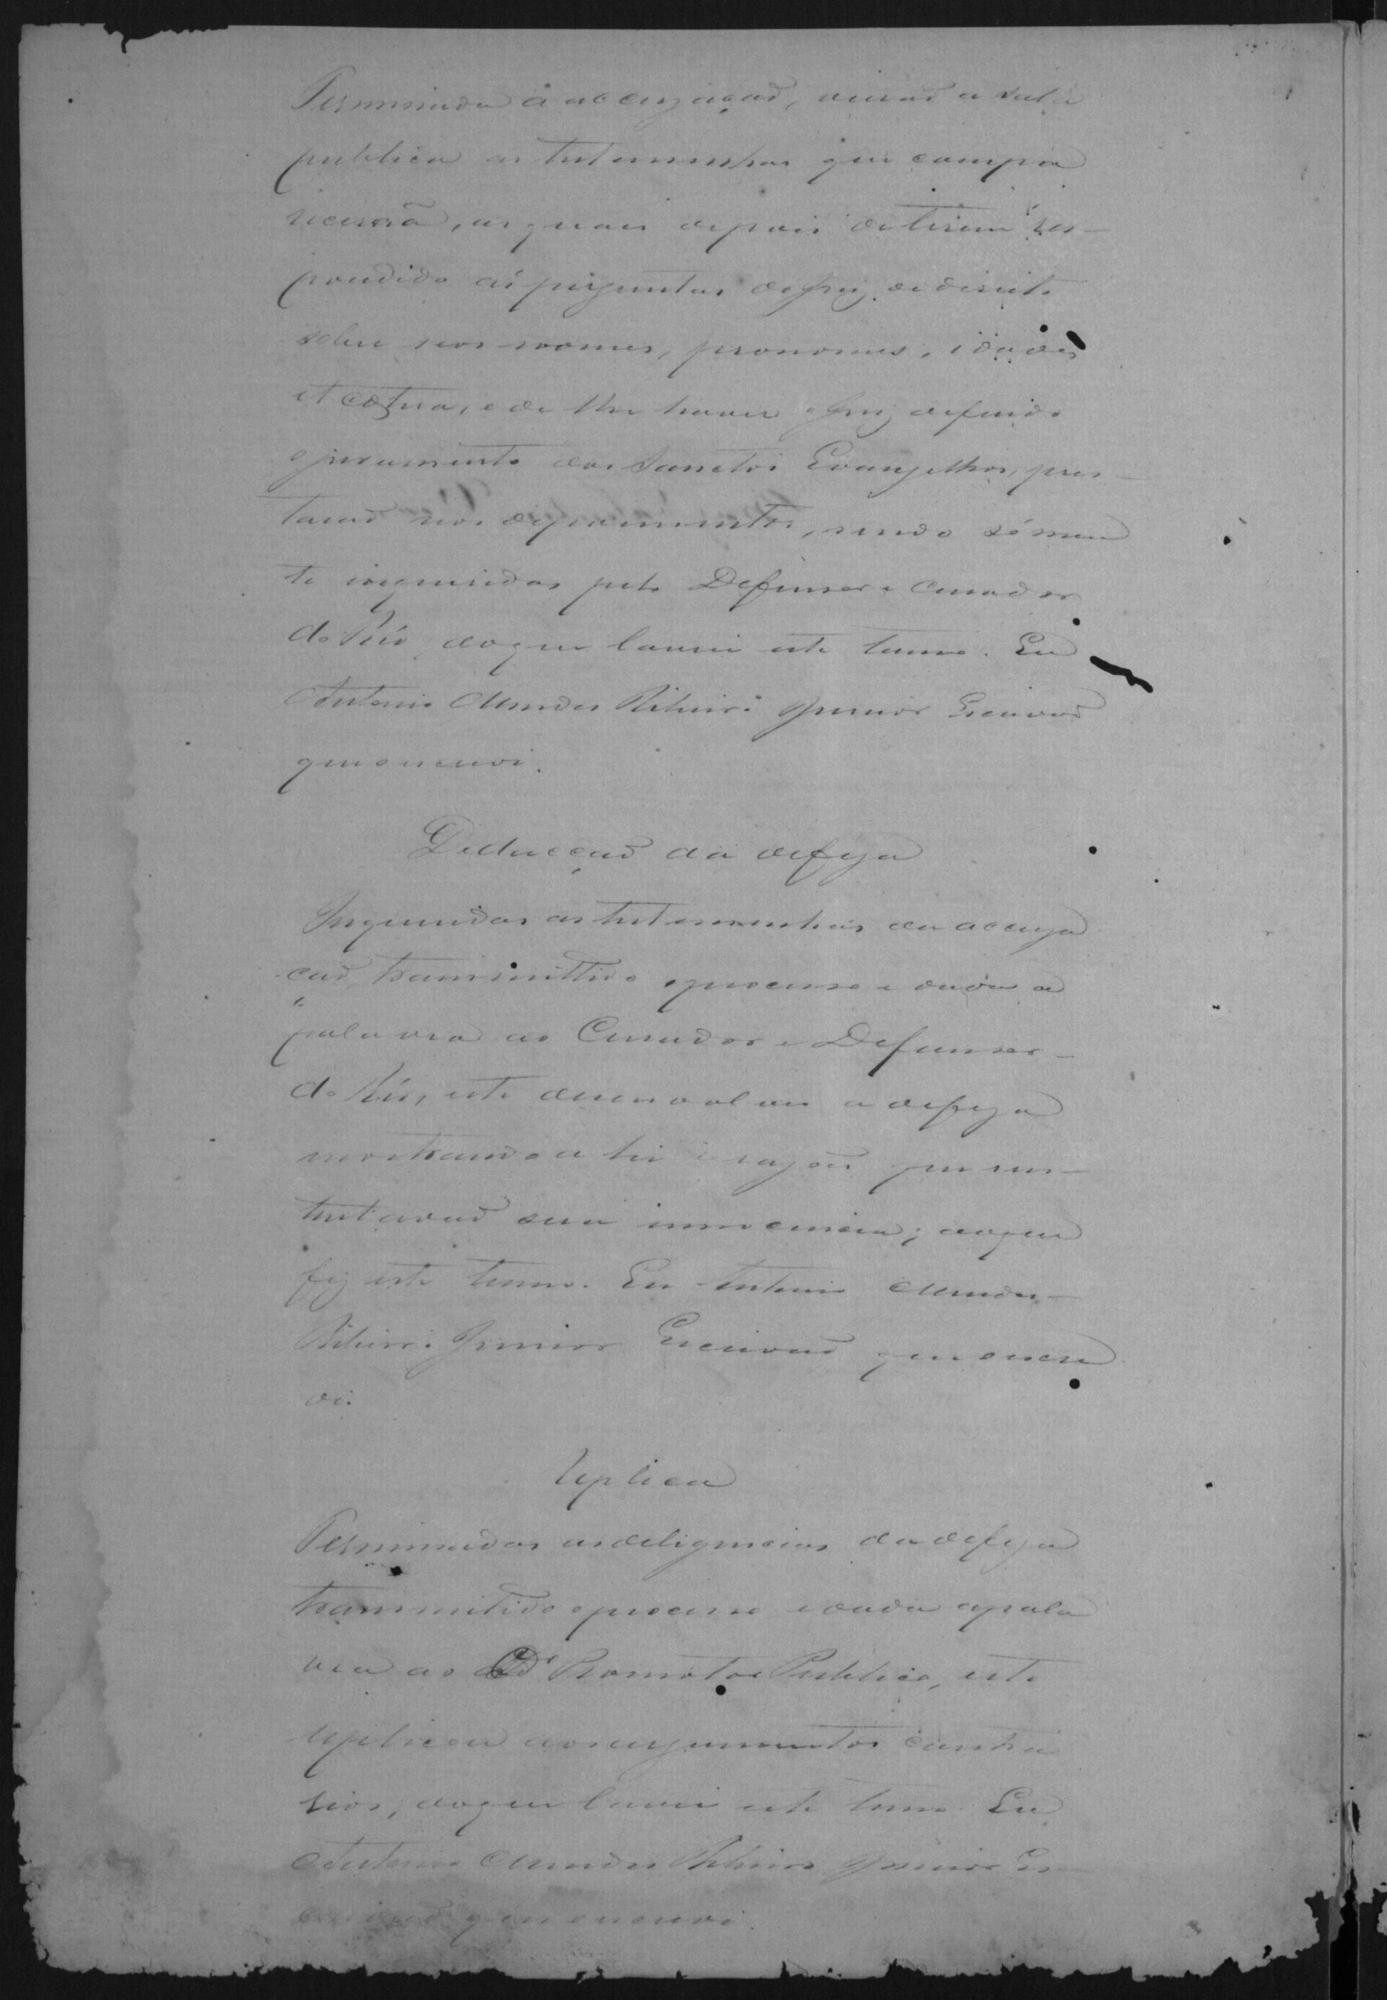 Terminada a accuzaçaõ, viéraõ a sala
publica as testemunhas que compa
receraõ, as quais depois de terem res-
pondido ás perguntas do Juiz de direito
sobre seos nomes, pronomes, idades
et cœtera, e de lhe haver o Juiz deferido
o juramento dos Sanctos Evangelhos, pres-
taraõ seos depoimentos, sendo sómen
te inqueridas pelo Defensor e Curador
do Réo, do que lavrei este termo. Eu
Antonio Mendes Ribeiro Junior Escrivaõ
que o escrevi.
Deducçaõ da defeza
Inqueridas as testemunhas da accuza
çaõ, transmittido o processo e dada a
palavra ao Curador e Defensor-
do Réo, este desenvolveu a defeza
mostrando a lei e razões que sus-
tentavaõ sua innocencia; do que
fiz este termo. Eu Antonio Mendes-
Ribeiro Junior Escrivaõ que o escre
vi.
Replica
Terminadas as deligencias da defeza
transmitido o processo e dada a pala
vra ao Dr. Promotor Publico, este
replicou aos argumentos contra
rios, do que lavrei este termo. Eu
Antonio Mendes Ribeiro Junior Es-
crivaõ que o escrevi.